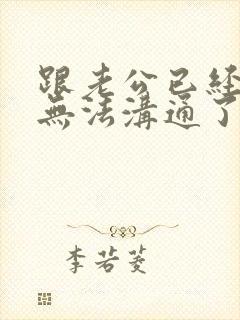 跟老公已經
無法溝通了
李若菱